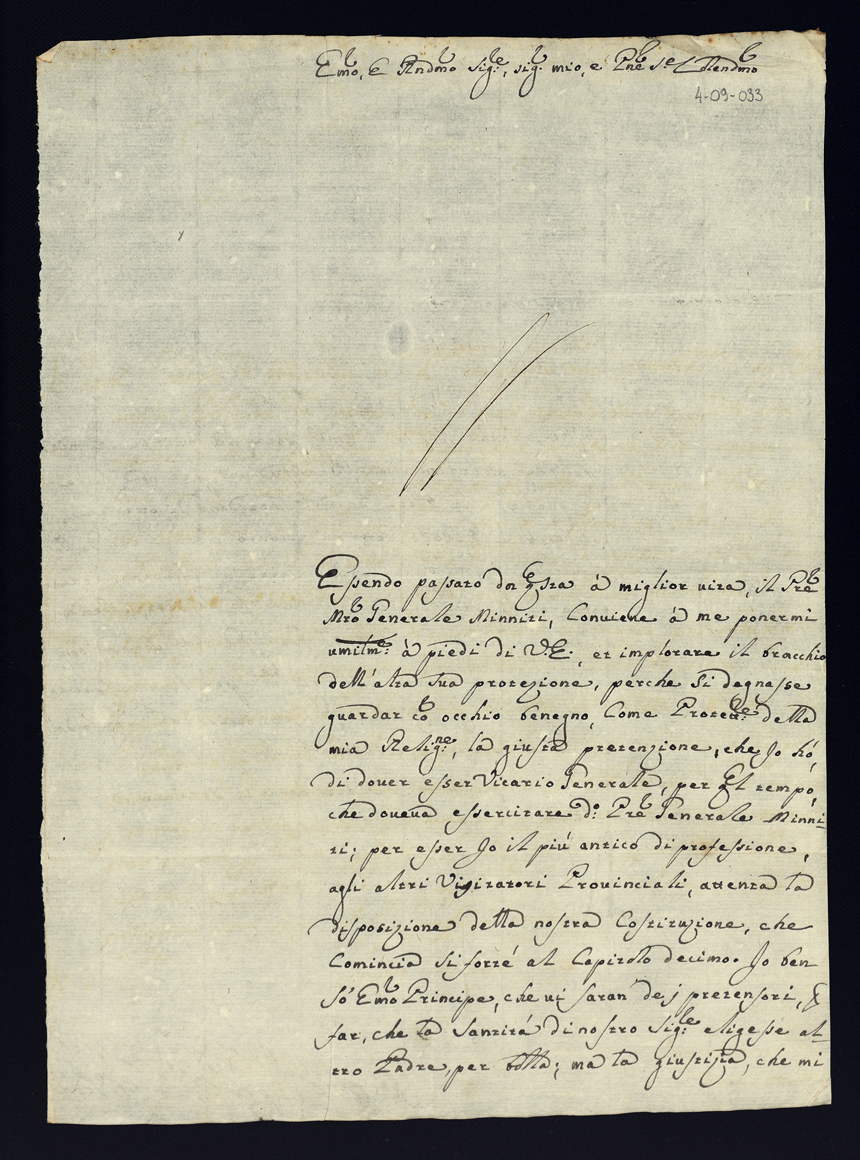 Emo, e Rndmo Sigre, sigr mio, e Pne Colendmo
4-09-033
Essendo passato da qsta à miglior vita, il Pre
Mro Generale Minniti, Conviene à me ponermi
umilme: à piedi di V.E., et implorare il bracchio
dell'alta sua protezione, perche si degnasse
guardar co occhio benegno, Come Protetre: della
mia Religne, la giusta pretenzione, che Jo hó,
di dover esser Vicario Generale, per ql tempo,
che doveva essercitare do: Pre Generale Minni-
ti; per esser Jo il piú antico di professione,
agli altri Visitatori Provinciali, attenta la
disposizione della nostra Costituzione, che
Comincia si forté al Capitolo decimo. Jo ben
só Emo Principe, che vi saran' dej pretensori, p
far, che la Santitá di nostro Sigre eligesse al-
tro Padre, per bolla; ma la giustizia, che mi